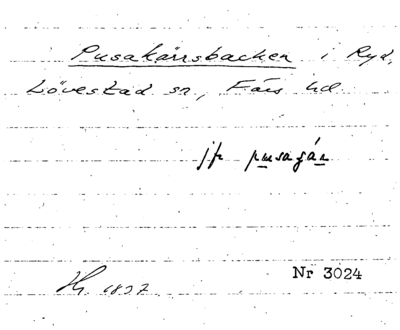 Pusakärrsbacken i Ryd,
Lövestad sn, Färs hd.
jfr pusagás
Nr 3024
1897